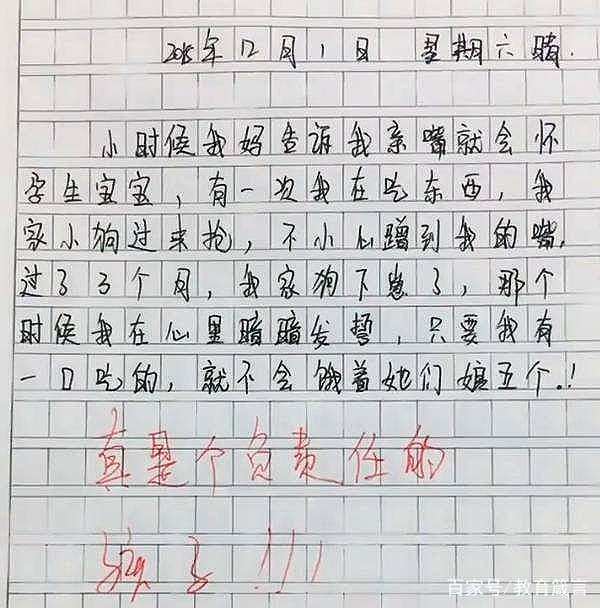 2018年12月1日 星期六晴.
小时候我妈告诉我亲嘴就会怀
孕生宝宝，有一次我在吃东西，我
家小狗过来抢，不小心蹭到我的嘴，
过了3个月，我家狗下崽了，那个
时候我在心里暗暗发誓，只要我有
一口吃的，就不会饿着她们娘五个.!
真是个负责任的
孩子!!!
百家号/教育微言